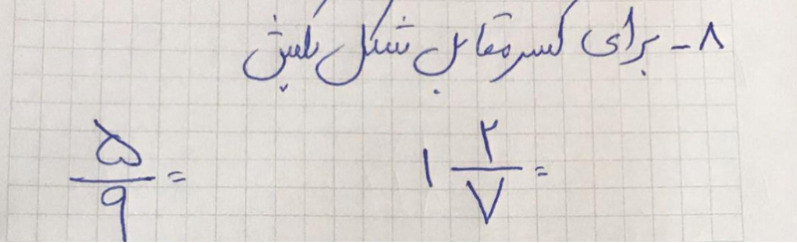 ۸- برای کسر مقابل شکل بکش
۱ ۲/۷ =
۵/۹ =